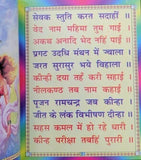 सेवक स्तुति करत सदाहीं
वेद नाम महिमा तुम गाई
अकथ अनादि भेद नहिं पाई
प्रगट उदधि मंथन में ज्वाला
जरत सुरासुर भए विहाला
कीन्ही दया तहं करी सहाई
नीलकण्ठ तब नाम कहाई
पूजन रामचन्द्र जब कीन्हा
जीत के लंक विभीषण दीन्हा
सहस कमल में हो रहे धारी
कीन्ह परीक्षा तबहिं पुरारी